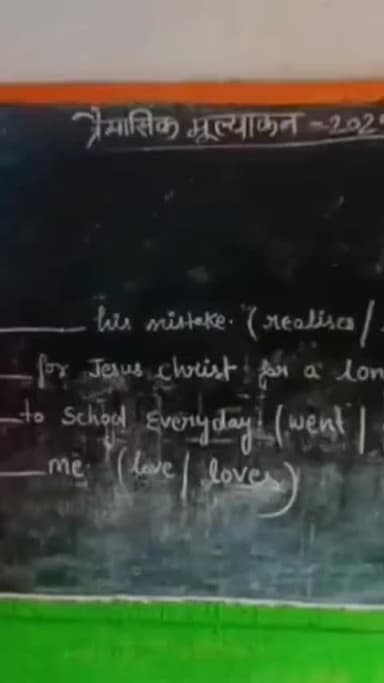 त्रैमासिक मूल्याकन - 202
_____ his mistake. (realises /
__ for Jesus christ for a lon
__ to School Everyday. (went /
___ me. (love / loves)